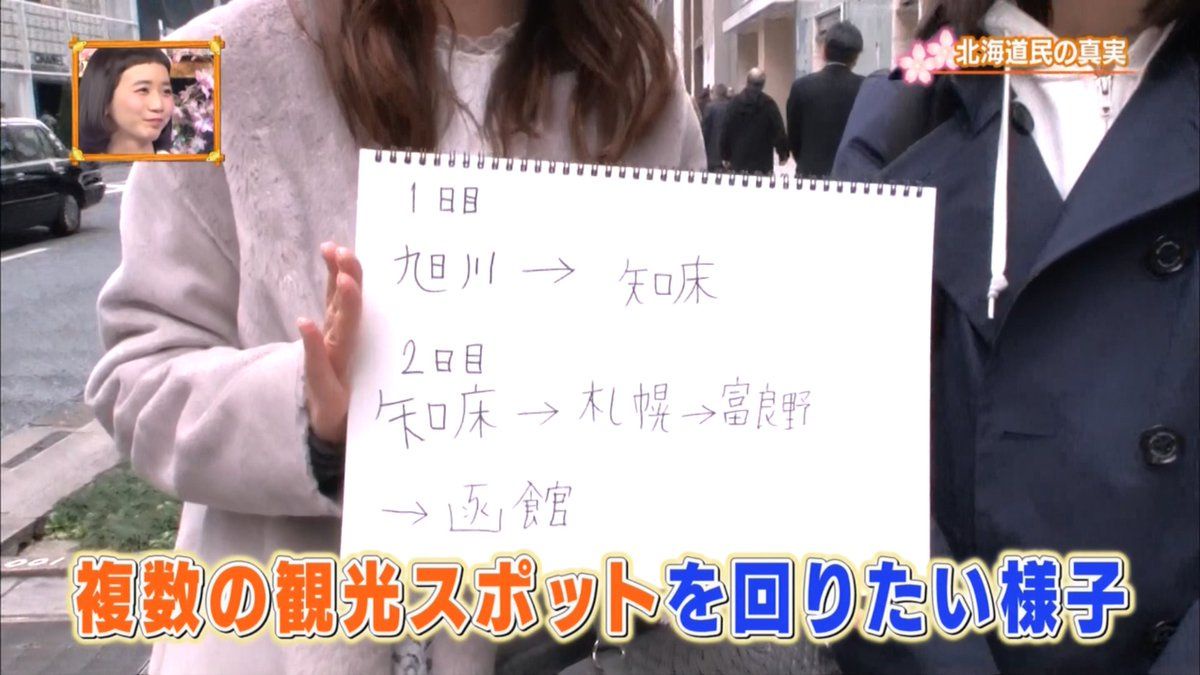 北海道民の真実
CHANEL
1日目
旭川 → 知床
2日目
知床 → 札幌 → 富良野
→ 函館
複数の観光スポットを回りたい様子